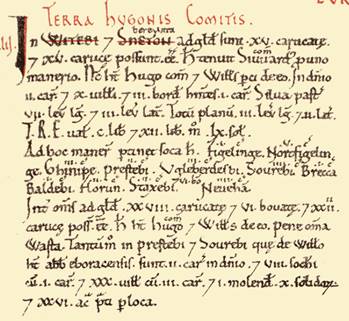 TERRA HUGONIS COMITIS.
In WITEBI & SNETON bereuuita ad gld sunt .xv. carucatę
& xv. carucę possunt. ēē. Hanc tenuit Siuuard p uno
manerio. Nc ht Hugo com & Willś pci de eo. In dnio
.ii. car. & x. uilli. & iii. bord. hntes .i. car. Silua past
.vii. leu lg. & .iii. leu lat. Tot manu .iii. leu lg. & .ii. lat.
T.R.E. ual. c. lib & xii. lib. m .lx. sol.
Ad hoc maner ptinet soca h. Figelinge. Nortfigelin
ge. Ghinipe. Prestebi. Ugleberdesbi. Sourebi. Brecca
Baldebi. Florun. Staxebi. Neueha.
Int oms ad gld .xx.viii. carucatę & vi. bouatę. & xx.ii.
carucę poss. ēē. H ht Hugo com & Willś de eo. Pene oma
Wasta. Tantu in Prestebi & Sourebi que de Willo
ht abb eboracensis. sunt .ii. car in dnio. & viii. sochi
cu .i. car. & xxx. uill cu .iii. car. & i. molend .x. solidoru
& xxvi. ac pti p loca.